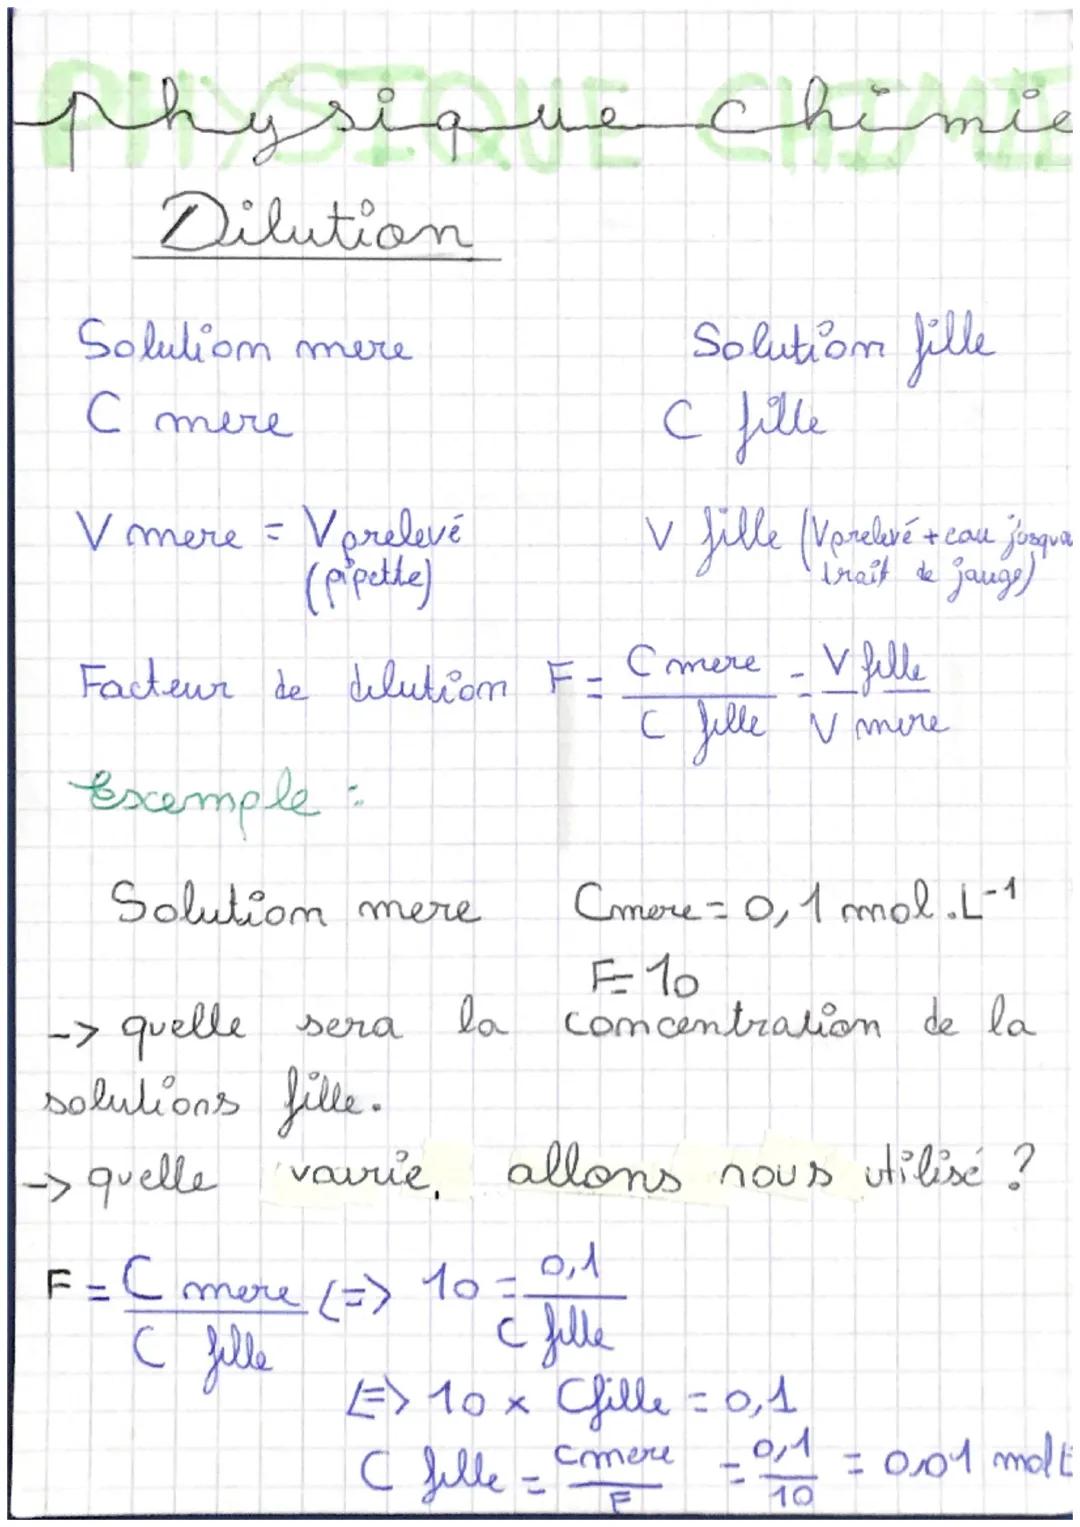 PHYSIQUE CHIMIE
physique chimie
Dilution
Solution mere Solution fille
C mere C fille
V mere = V prelevé V fille (V prelevé + eau jusqua
(pipette) trait de jauge)
Facteur de dilution F = C mere / C fille = V fille / V mere
Exemple :
Solution mere Cmere = 0,1 mol.L-1
F = 10
-> quelle sera la concentration de la
solutions fille.
-> quelle allons nous utilisé ?
F = C mere / C fille <=> 10 = 0,1 / C fille
<=> 10 x Cfille = 0,1
C fille = Cmere / F = 0,1 / 10 = 0,01